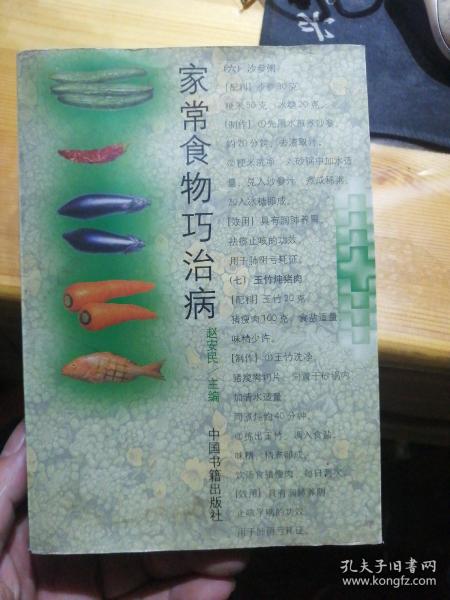 家常食物巧治病
赵安民 主编
中国书籍出版社
(六) 沙参粥
[配料] 沙参30克
粳米50克 冰糖20克。
[制作] ①先用水煎煮沙参,
约20分钟,去渣取汁。
②粳米洗净,入砂锅中加水适
量,兑入沙参汁,煮成稀粥,
加入冰糖即成。
[效用] 具有润肺养胃、
祛痰止咳的功效,
用于肺阴亏耗证。
(七) 玉竹炖猪肉
[配料] 玉竹20克,
猪瘦肉100克,食盐适量,
味精少许。
[制作] ①玉竹洗净,
猪瘦肉切片,同置于砂锅内,
加清水适量,
同煮炖约40分钟。
②拣出玉竹,调入食盐、
味精,稍煮即成。
饮汤食猪瘦肉,每日两次。
[效用] 具有润肺养阴、
止咳孕嗽的功效,
用于肺阴亏耗证。
孔夫子旧书网
www.kongfz.com